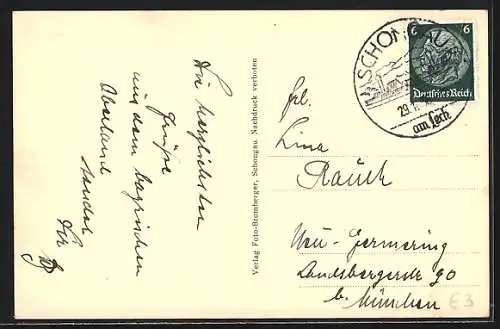 Die herzlichsten
Grüße
aus dem bayrischen
Oberland
sendet
Dir
Verlag Foto-Bromberger, Schongau Nachdruck verboten
SCHONGAU
am Lech
29
6 6
Deutsches Reich
Frl.
Lina
Rauch
Neu-Germering
Landsbergerstr 90
b. München
€ 3